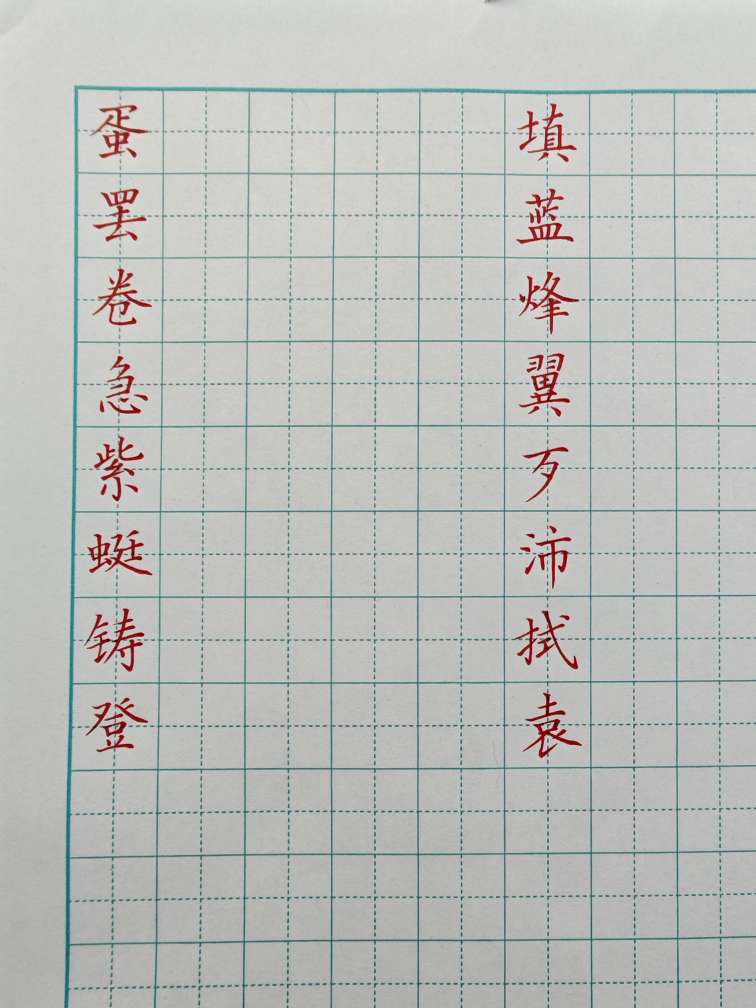 蛋罢卷急紫蜓铸登
填蓝烽翼歹沛拭袁